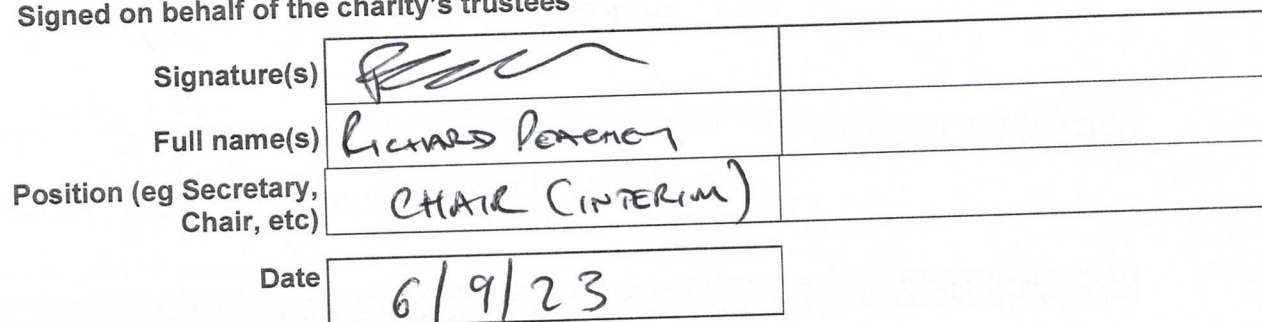 Signed on behalf of the charity's trustees
Signature(s)
Full name(s) RICHARD PEACHEY
Position (eg Secretary,
Chair, etc) CHAIR (INTERIM)
Date 6/9/23